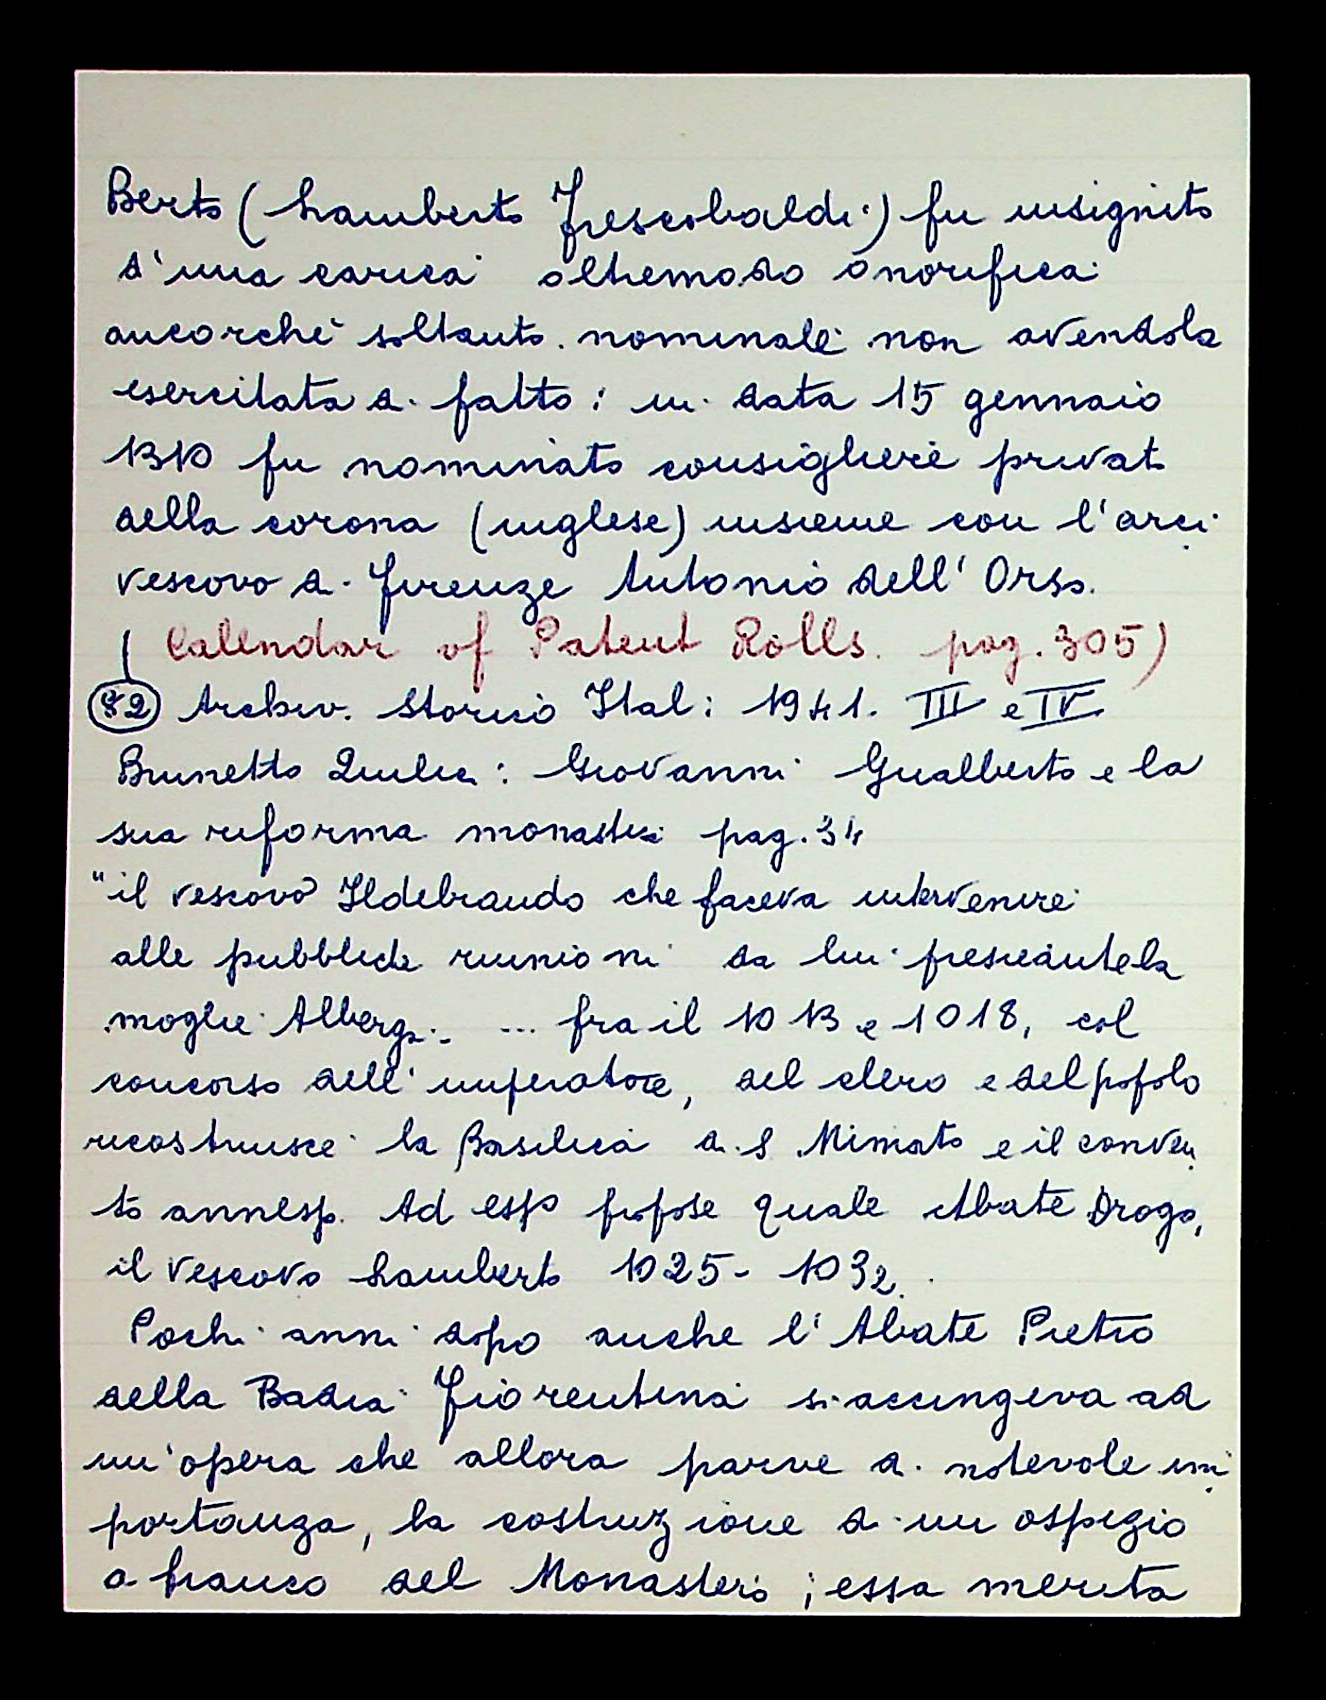 Berto (Lamberto Frescobaldi) fu insignito
d'una carica oltremodo onorifica
ancorché soltanto nominale non avendola
esercitata di fatto: in data 15 gennaio
1310 fu nominato consigliere privato
della corona (inglese) insieme con l'arci
vescovo di Firenze Antonio dell'Orso.
( Calendar of Patent Rolls. pag. 305)
Archiv. Storico Ital: 1941. III e IV
Brunetto Quilici: Giovanni Gualberto e la
sua riforma monastica pag. 34
"il vescovo Ildebrando che faceva intervenire
alle pubbliche riunioni da lui presiedute la
moglie Alberga. ... fra il 1013 e 1018, col
concorso dell'imperatore, del clero e del popolo
ricostruisce la Basilica di S. Miniato e il conven
to annesso. Ad esso propose quale Abate Drogo,
il vescovo Lamberto 1025 - 1032.
Pochi anni dopo anche l'Abate Pietro
della Badia Fiorentina si accingeva ad
un'opera che allora parve di notevole im
portanza, la costruzione di un ospizio
a fianco del Monastero; essa merita